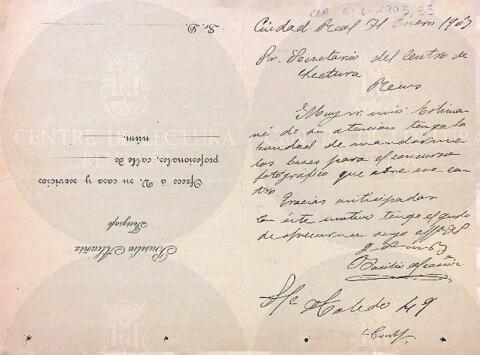 Ciudad Real 31 Enero 1903
Sr. Secretario del Centro de
Lectura
Reus
Muy sr. mio: Estima-
ré de su atencion tenga la
bondad de mandarme
las bases para el concurso
fotográfico que abre ese cen-
tro
Gracias anticipadas
con este motivo tengo el gusto
de
Basilio Alcañiz
S/c Toledo 49
Sr. D.
Basilio Alcañiz
Fotógrafo
Ofrece á V. su casa y servicios
profesionales, calle de
núm.
CENTRE DE LECTURA